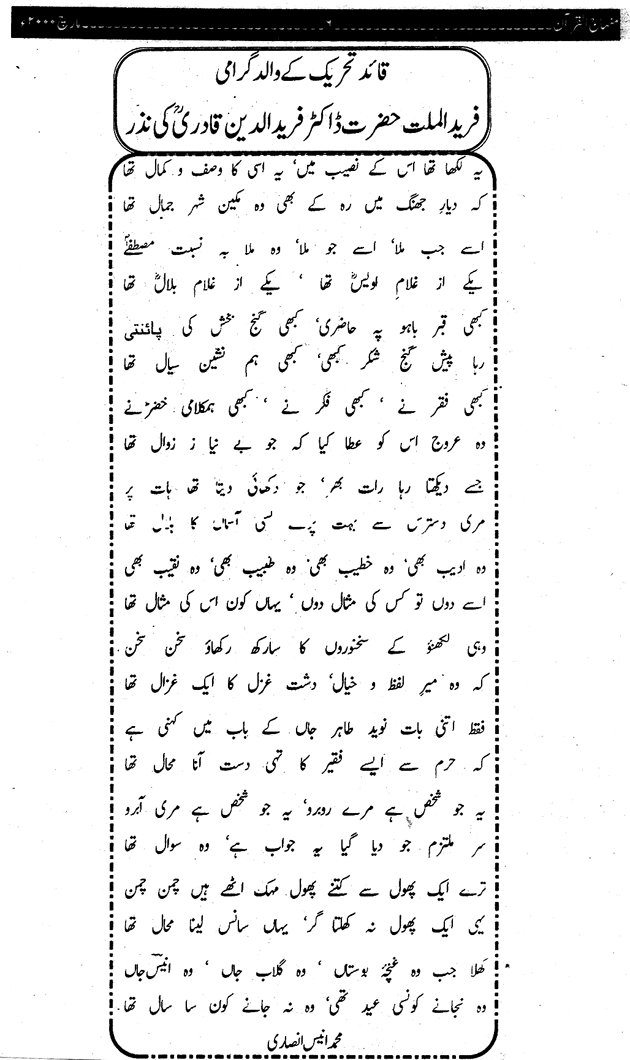 منہاج القرآن ۶ مارچ ۲۰۰۰ء
قائد تحریک کے والد گرامی
فرید الملت حضرت ڈاکٹر فرید الدین قادریؒ کی نذر
یہ لکھا تھا اس کے نصیب میں‘ یہ اسی کا وصف و کمال تھا
کہ دیار جھنگ میں رہ کے بھی وہ مکین شہر جمال تھا
اسے جب ملا‘ اسے جو ملا‘ وہ ملا بہ نسبت مصطفیٰؐ
یکے از غلام اویسؓ تھا ‘ یکے از غلام بلالؓ تھا
کبھی قبر باہو پہ حاضری‘ کبھی گنج بخش کی پائنتی
رہا پیش گنج شکر کبھی‘ کبھی ہم نشین سیال تھا
کبھی فقر نے ‘ کبھی فکر نے ‘ کبھی ہمکلامی خضرؑ نے
وہ عروج اس کو عطا کیا کہ جو بے نیاز زوال تھا
جسے دیکھتا رہا رات بھر‘ جو دکھائی دیتا تھا ہات پر
مری دسترس سے بہت پرے کسی آسماں کا ہلال تھا
وہ ادیب بھی‘ وہ خطیب بھی‘ وہ طبیب بھی‘ وہ نقیب بھی
اسے دوں تو کس کی مثال دوں‘ یہاں کون اس کی مثال تھا
وہی لکھنؤ کے سخنوروں کا سارکھ رکھاؤ سخن سخن
کہ وہ میر لفظ و خیال‘ دشت غزل کا ایک غزال تھا
فقط اتنی بات نوید طاہر جاں کے باب میں کہنی ہے
کہ حرم سے ایسے فقیر کا تہی دست آنا محال تھا
یہ جو شخص ہے مرے روبرو‘ یہ جو شخص ہے مری آبرو
سر ملتزم جو دیا گیا یہ جواب ہے‘ وہ سوال تھا
ترے ایک پھول سے کتنے پھول مہک اٹھے ہیں چمن چمن
یہی ایک پھول نہ کھلتا گر‘ یہاں سانس لینا محال تھا
کھلا جب وہ غنچۂ بوستاں ‘ وہ گلاب جاں ‘ وہ انیس جاں
وہ نجانے کونسی عید تھی‘ وہ نہ جانے کون سا سال تھا
محمد انیس انصاری